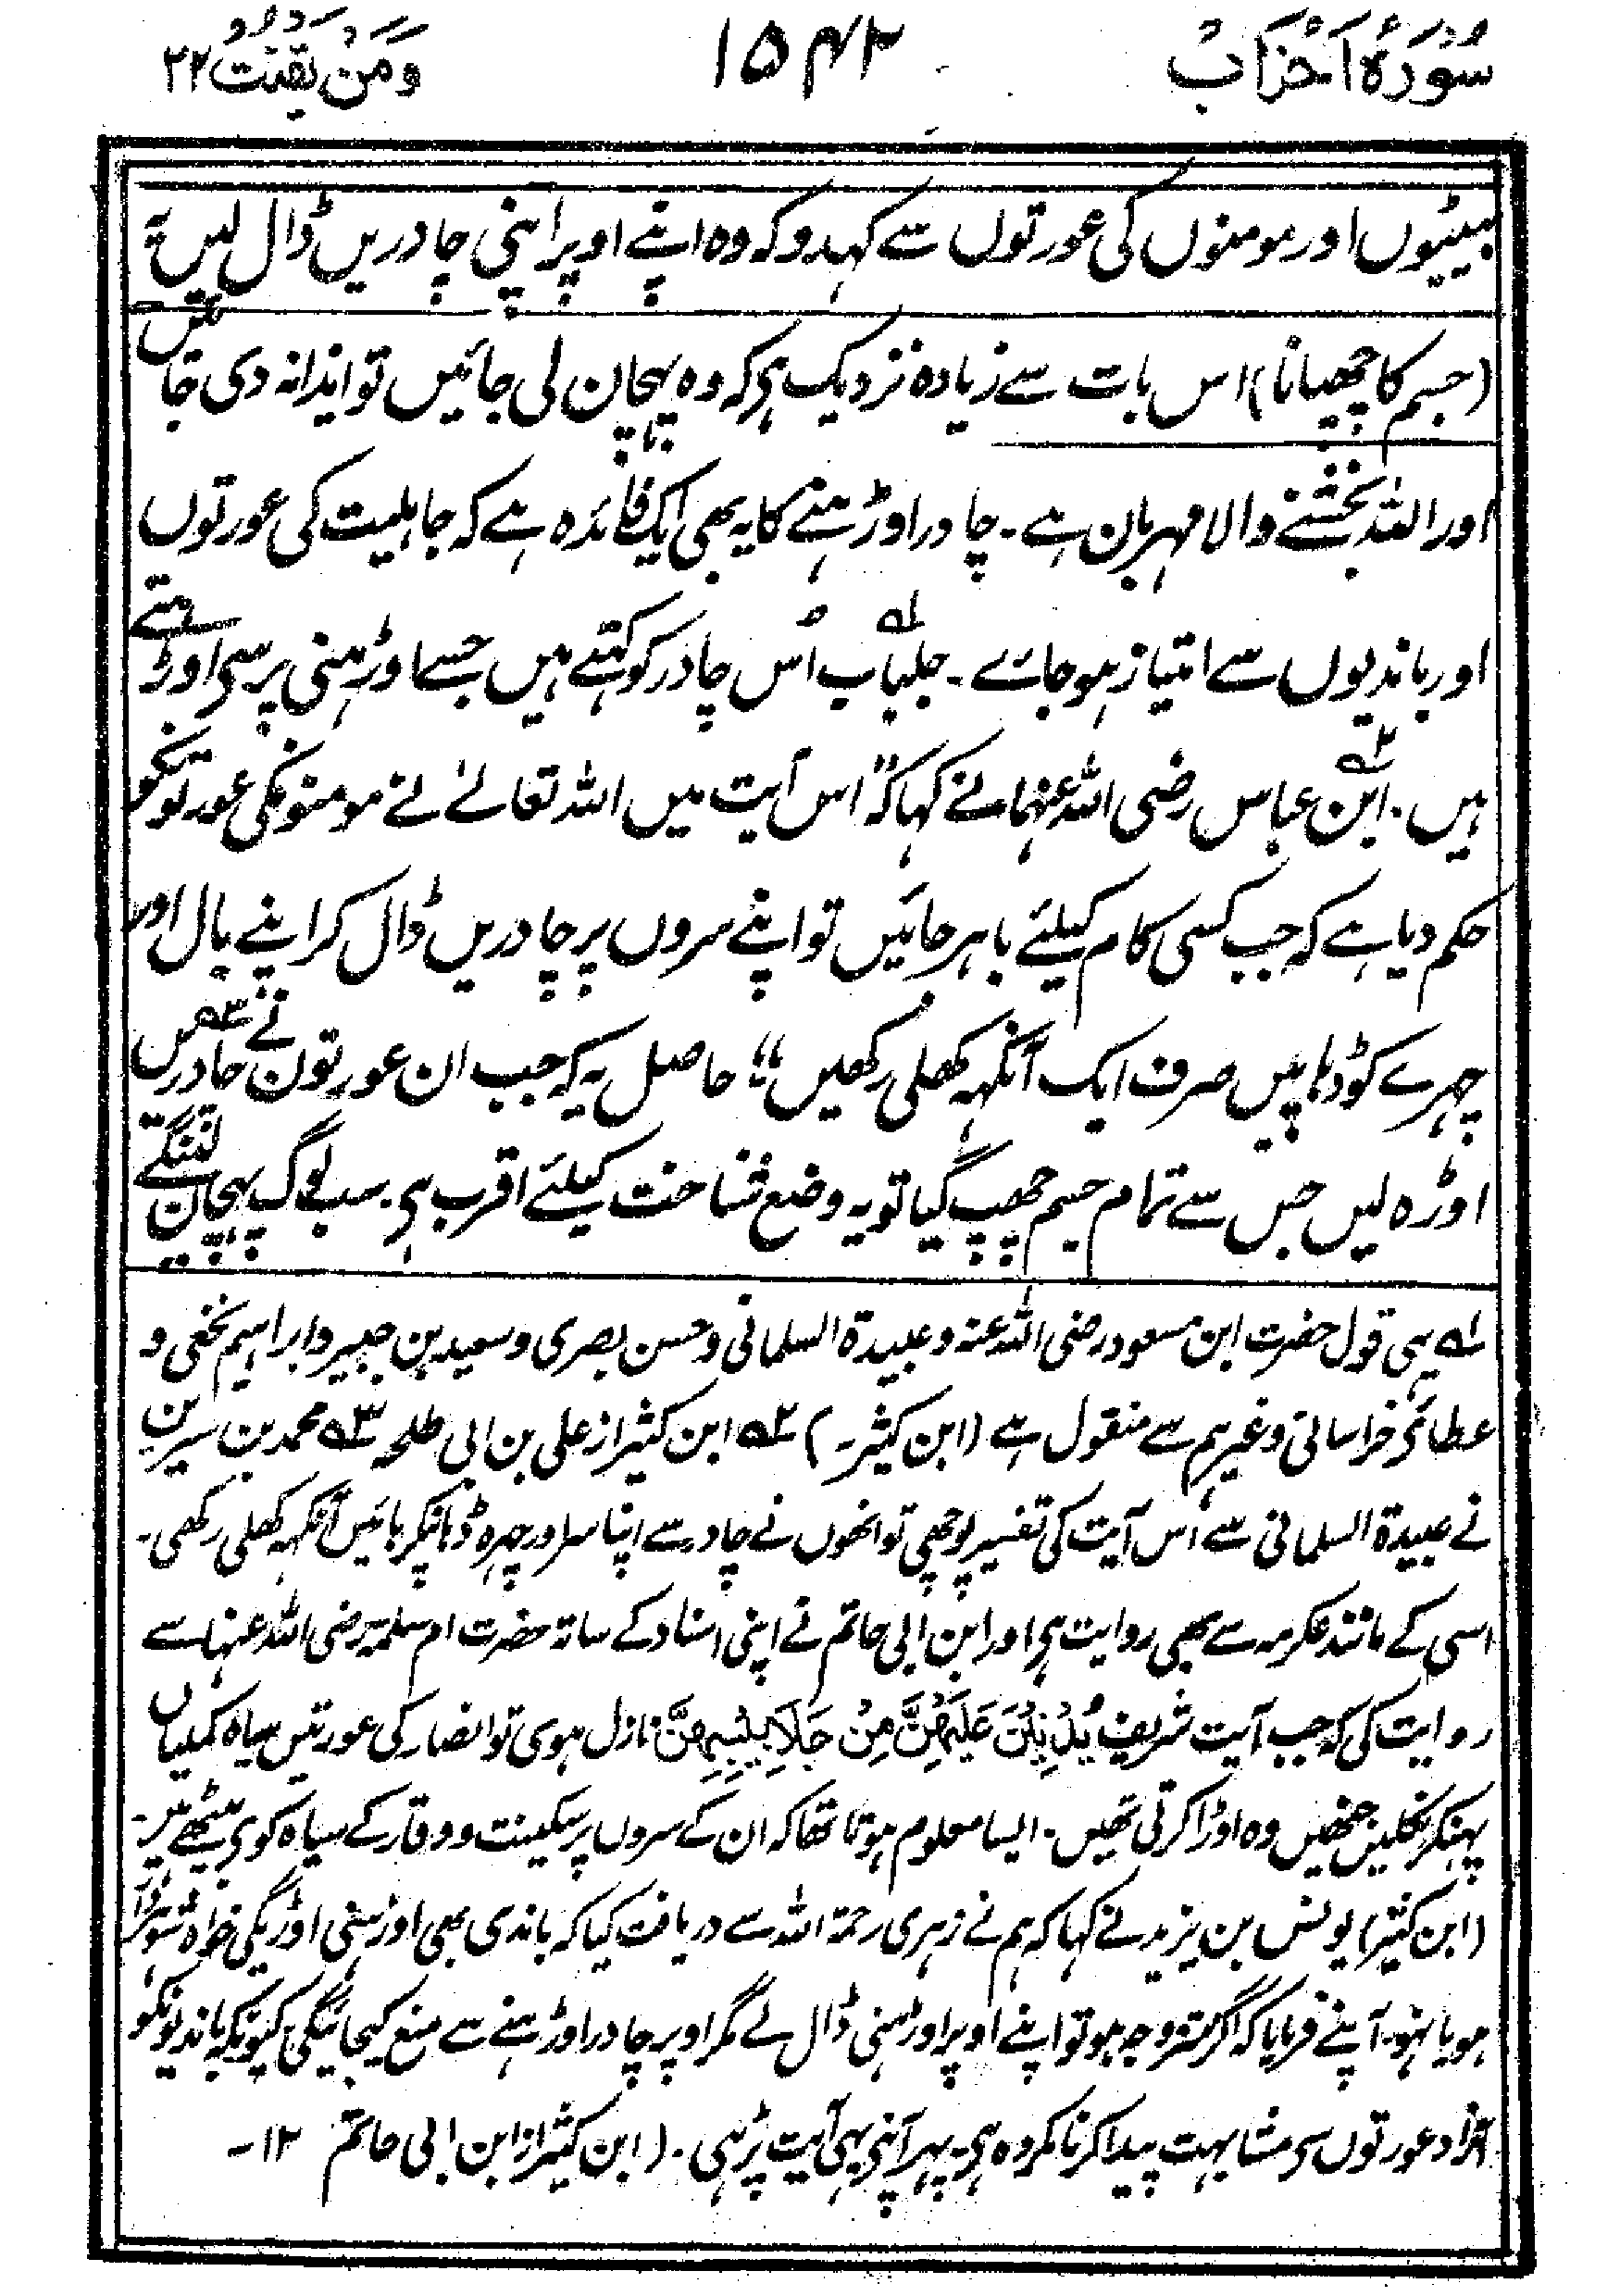 سُوْرَۂُ اَحْزَابْ ۱۵۴۲ وَمَنْ يَقْنُتْ ۲۲
بیٹیوں اور مومنوں کی عورتوں سے کہدو کہ وہ اپنے اوپر اپنی چادریں ڈال لیں یہ
(جسم کا چھپانا) اس بات سے زیادہ نزدیک ہی کہ وہ پہچان لی جائیں تو ایذا نہ دی جائیں
اور اللہ بخشنے والا مہربان ہے۔ چادر اوڑہنے کا یہ بھی ایک فائدہ ہے کہ جاہلیت کی عورتوں
اور باندیوں سے امتیاز ہوجائے۔ جلباب اُس چادر کو کہتے ہیں جسے اوڑہنی پر سی اوڑہتے
ہیں۔ ابن عباس رضی اللہ عنہما نے کہا کہ "اس آیت میں اللہ تعالےٰ نے مومنونکی عورتونکو
حکم دیا ہے کہ جب کسی کام کیلئے باہر جائیں تو اپنے سروں پر چادریں ڈال کر اپنے بال اور
چہرے کو ڈہانپیں صرف ایک آنکہہ کھلی رکھیں" حاصل یہ کہ جب ان عورتون نے چادریں
اوڑہ لیں جس سے تمام جسم چھپ گیا تو یہ وضع شناخت کیلئے اقرب ہی۔ سب لوگ پہچان لینگے
؎۱ یہی قول حضرت ابن مسعود رضی اللہ عنہ و عبیدۃ السلمانی و حسن بصری و سعید بن جبیر و ابراہیم نخعی و
عطائی خراسانی وغیرہم سے منقول ہے (ابن کثیر۔) ؎۲ ابن کثیر از علی بن ابی طلحہ ؎۳ محمد بن سیرین
نے عبیدۃ السلمانی سے اُس آیت کی تفسیر پوچھی تو انھوں نے چادر سے اپنا سر اور چہرہ ڈہانپکر بائیں آنکہہ کھلی رکھی۔
اسی کے مانند عکرمہ سے بھی روایت ہی اور ابن ابی حاتم نے اپنی اسناد کے ساتہ حضرت ام سلمہ رضی اللہ عنہا سے
روایت کی کہ جب آیت شریف يُدْنِيْنَ عَلَيْهِنَّ مِنْ جَلَابِيْبِهِنَّ نازل ہوی تو انصار کی عورتیں سیاہ کملیاں
پہنکر نکلیں جنھیں وہ اوڑا کرتی تھیں۔ ایسا معلوم ہوتا تھا کہ ان کے سروں پر سکینت و وقار کے سیاہ کوی بیٹھے ہیں۔
(ابن کثیر) یونس بن یزید نے کہا کہ ہم نے زہری رحمۃ اللہ سے دریافت کیا کہ باندی بھی اوڑہنی اوڑیگی خواہ شوہردار
ہو یا نہو۔ آپنے فرمایا کہ اگر متزوجہ ہو تو اپنے اوپر اوڑہنی ڈال لے مگر اوپر چادر اوڑہنے سے منع کیجائیگی کیونکہ باندیونکو
آزاد عورتوں سی مشابہت پیدا کرنا مکروہ ہی۔ پہر آپنی یہی آیت پڑہی۔ (ابن کثیر از ابن ابی حاتم ۱۲۔